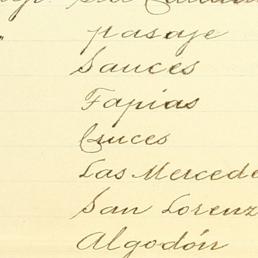 pasaje
"
Sauces
Tapias
Cruces
Las Mercede
San Lorenz
Algodón